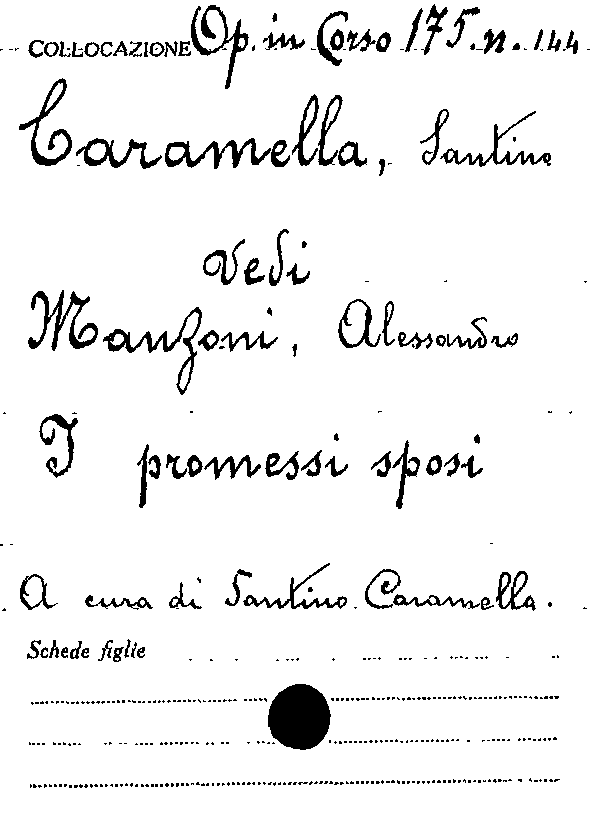 COLLOCAZIONE Op. in Corso 175. n. 144
Caramella, Santino
Vedi
Manzoni, Alessandro
I promessi sposi
A cura di Santino Caramella.
Schede figlie